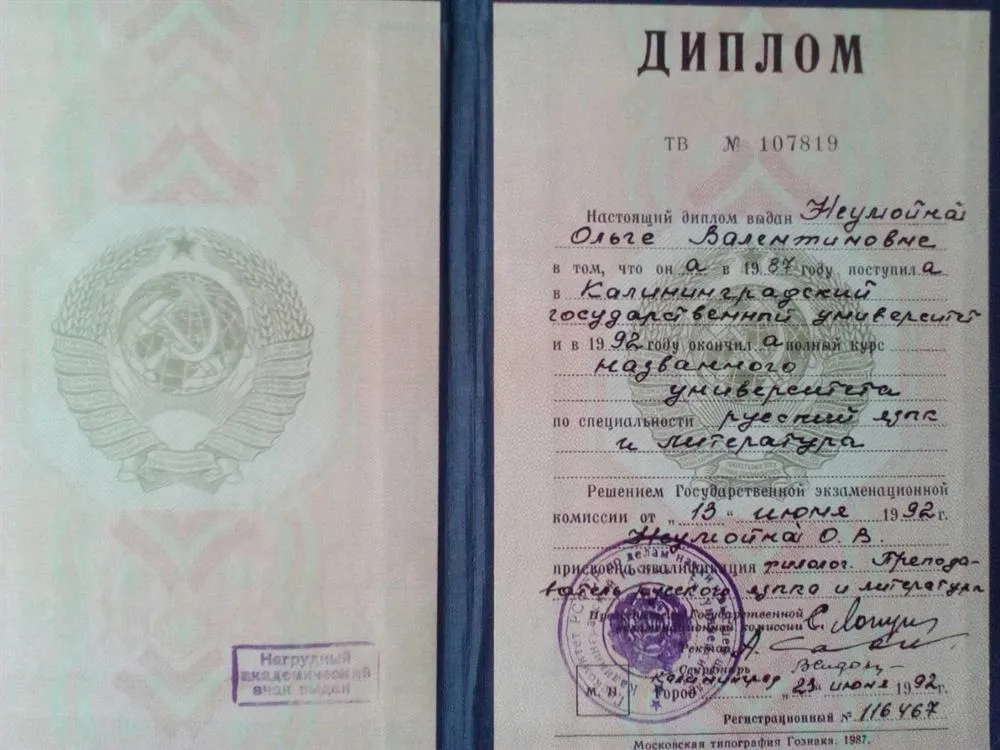 Нагрудный
академический
знак выдан
ДИПЛОМ
ТВ № 107819
Настоящий диплом выдан Неумойна
Ольге Валентиновне
в том, что он а в 1987 году поступил а
в Калининградский
государственный университет
и в 1992 году окончил а полный курс
названного
университета
по специальности русский язык
и литература
Решением Государственной экзаменационной
комиссии от „ 13 “ июня 1992 г.
Неумойна О. В.
присвоена квалификация филолог. Препода-
ватель русского языка и литературы
Председатель Государственной
экзаменационной комиссии
Ректор
Секретарь
Город Калининград „ 23 “ июня 1992 г.
М. П.
Регистрационный № 116467
Московская типография Гознака. 1987.